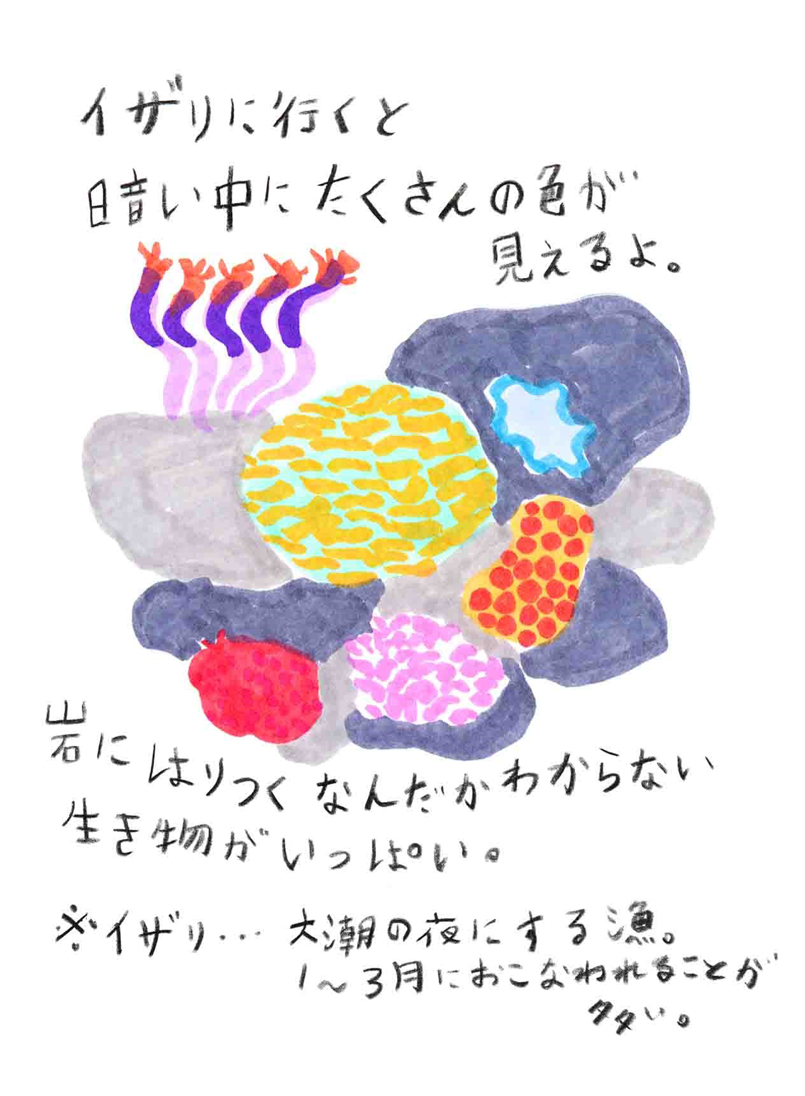 イザリに行くと
暗い中にたくさんの色が
見えるよ。
岩にはりつくなんだかわからない
生き物がいっぱい。
※イザリ… 大潮の夜にする漁。
1〜3月におこなわれることが
多い。